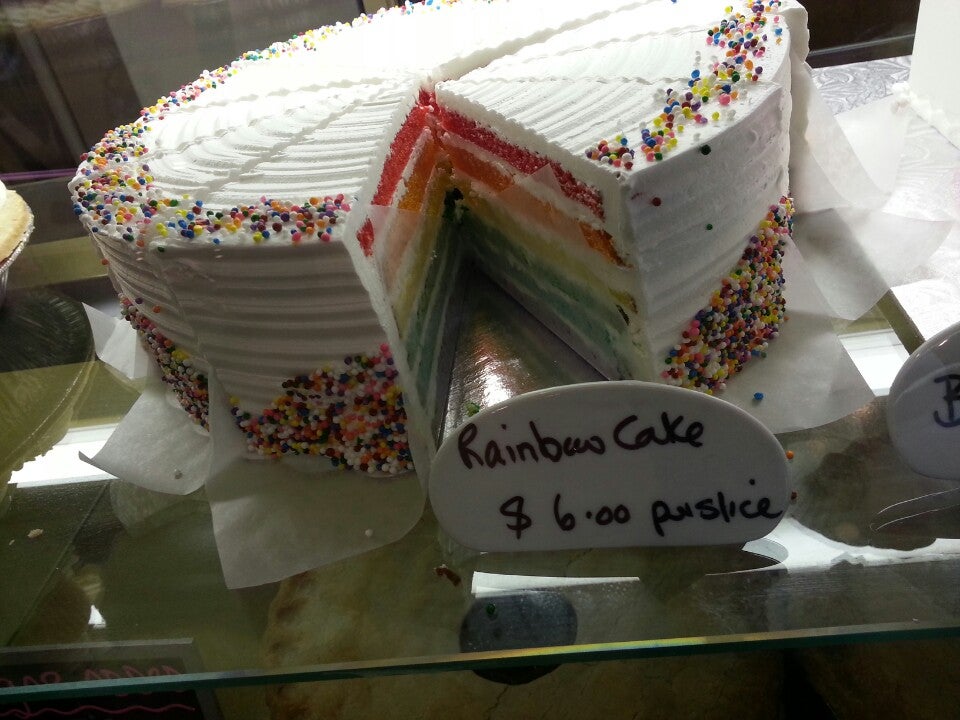 Rainbow Cake
$ 6.00 per slice
B